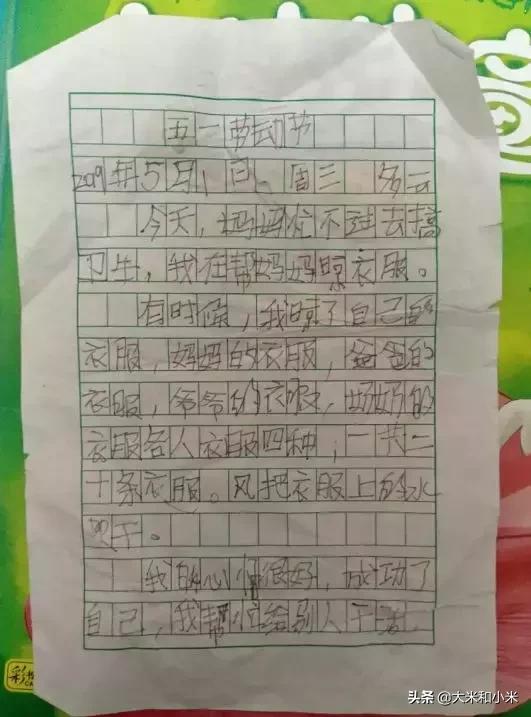 五一劳动节
2019年5月1日、周三 多云
今天,妈妈忙不过去搞
卫生,我在帮妈妈晾衣服。
有时候,我晾了自己的
衣服,妈妈的衣服,爸爸的
衣服,爷爷的衣服,奶奶的
衣服各人衣服四种,一共二
十条衣服。风把衣服上的水
吹干。
我的心情很好,成功了
自己,我帮忙给别人干活。
彩
头条 @大米和小米